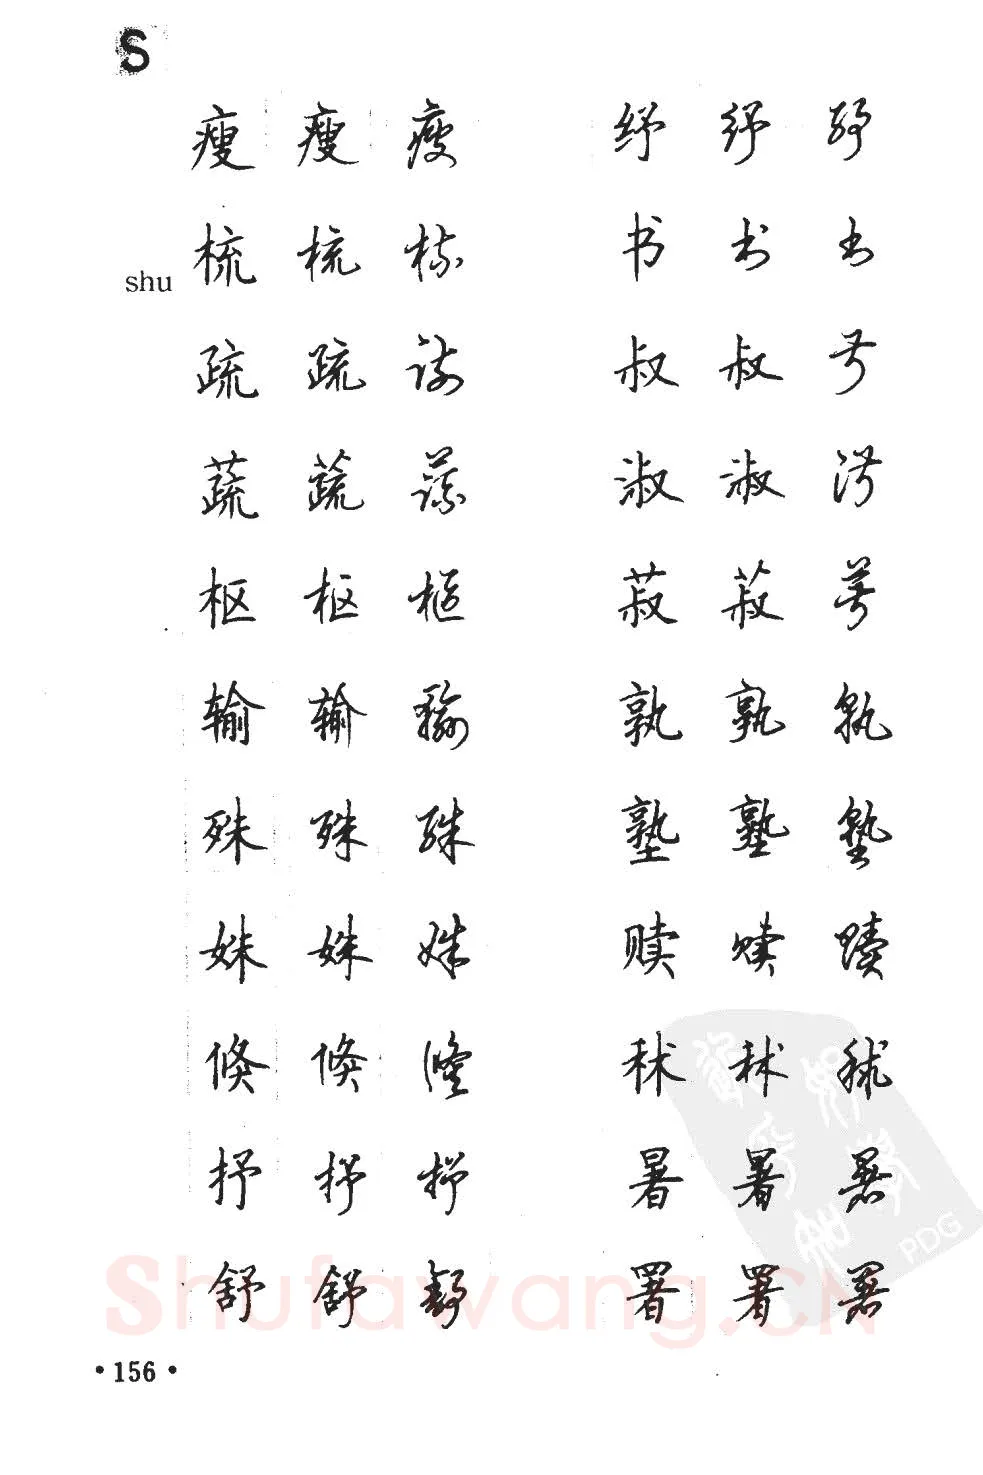 S
瘦 瘦 瘦 纾 纾 纾
梳 梳 梳 书 书 书
shu
疏 疏 疏 叔 叔 叔
蔬 蔬 蔬 淑 淑 淑
枢 枢 枢 菽 菽 菽
输 输 输 孰 孰 孰
殊 殊 殊 塾 塾 塾
姝 姝 姝 赎 赎 赎
倏 倏 倏 秫 秫 秫
抒 抒 抒 暑 暑 暑
舒 舒 舒 署 署 署
Shufawang.CN
PDG
• 156 •